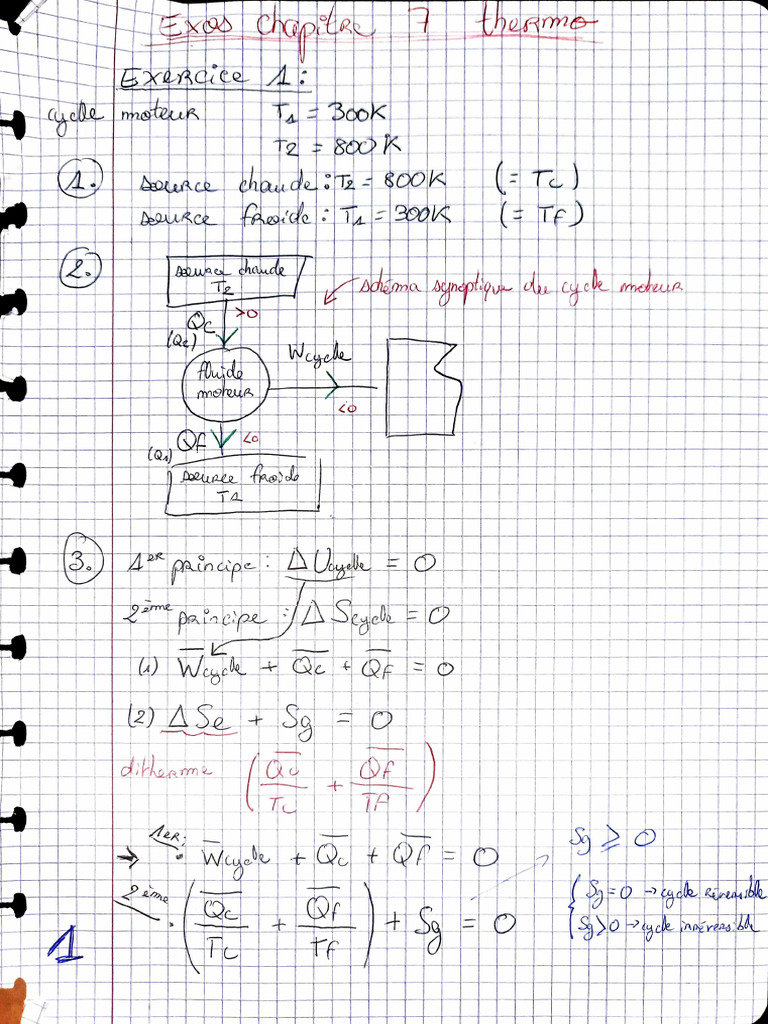 Exos chapitre 7 thermo
Exercice 1:
cycle moteur T1 = 300K
T2 = 800K
1. source chaude: T2 = 800K (= Tc)
source froide: T1 = 300K (= Tf)
2. source chaude
T2
schéma synoptique du cycle moteur
Qc >0
(Q2)
Wcycle
fluide
moteur
<0
Qf <0
(Q1)
source froide
T1
3. 1er principe: ΔUcycle = 0
2ème principe: ΔScycle = 0
(1) W̅cycle + Q̅c + Q̅f = 0
(2) ΔSe + Sg = 0
ditherme (Q̅c/Tc + Q̅f/Tf)
→ 1er: • W̅cycle + Q̅c + Q̅f = 0
Sg ⩾ 0
2ème • (Q̅c/Tc + Q̅f/Tf) + Sg = 0
{ Sg=0 → cycle réversible
Sg>0 → cycle irréversible
1